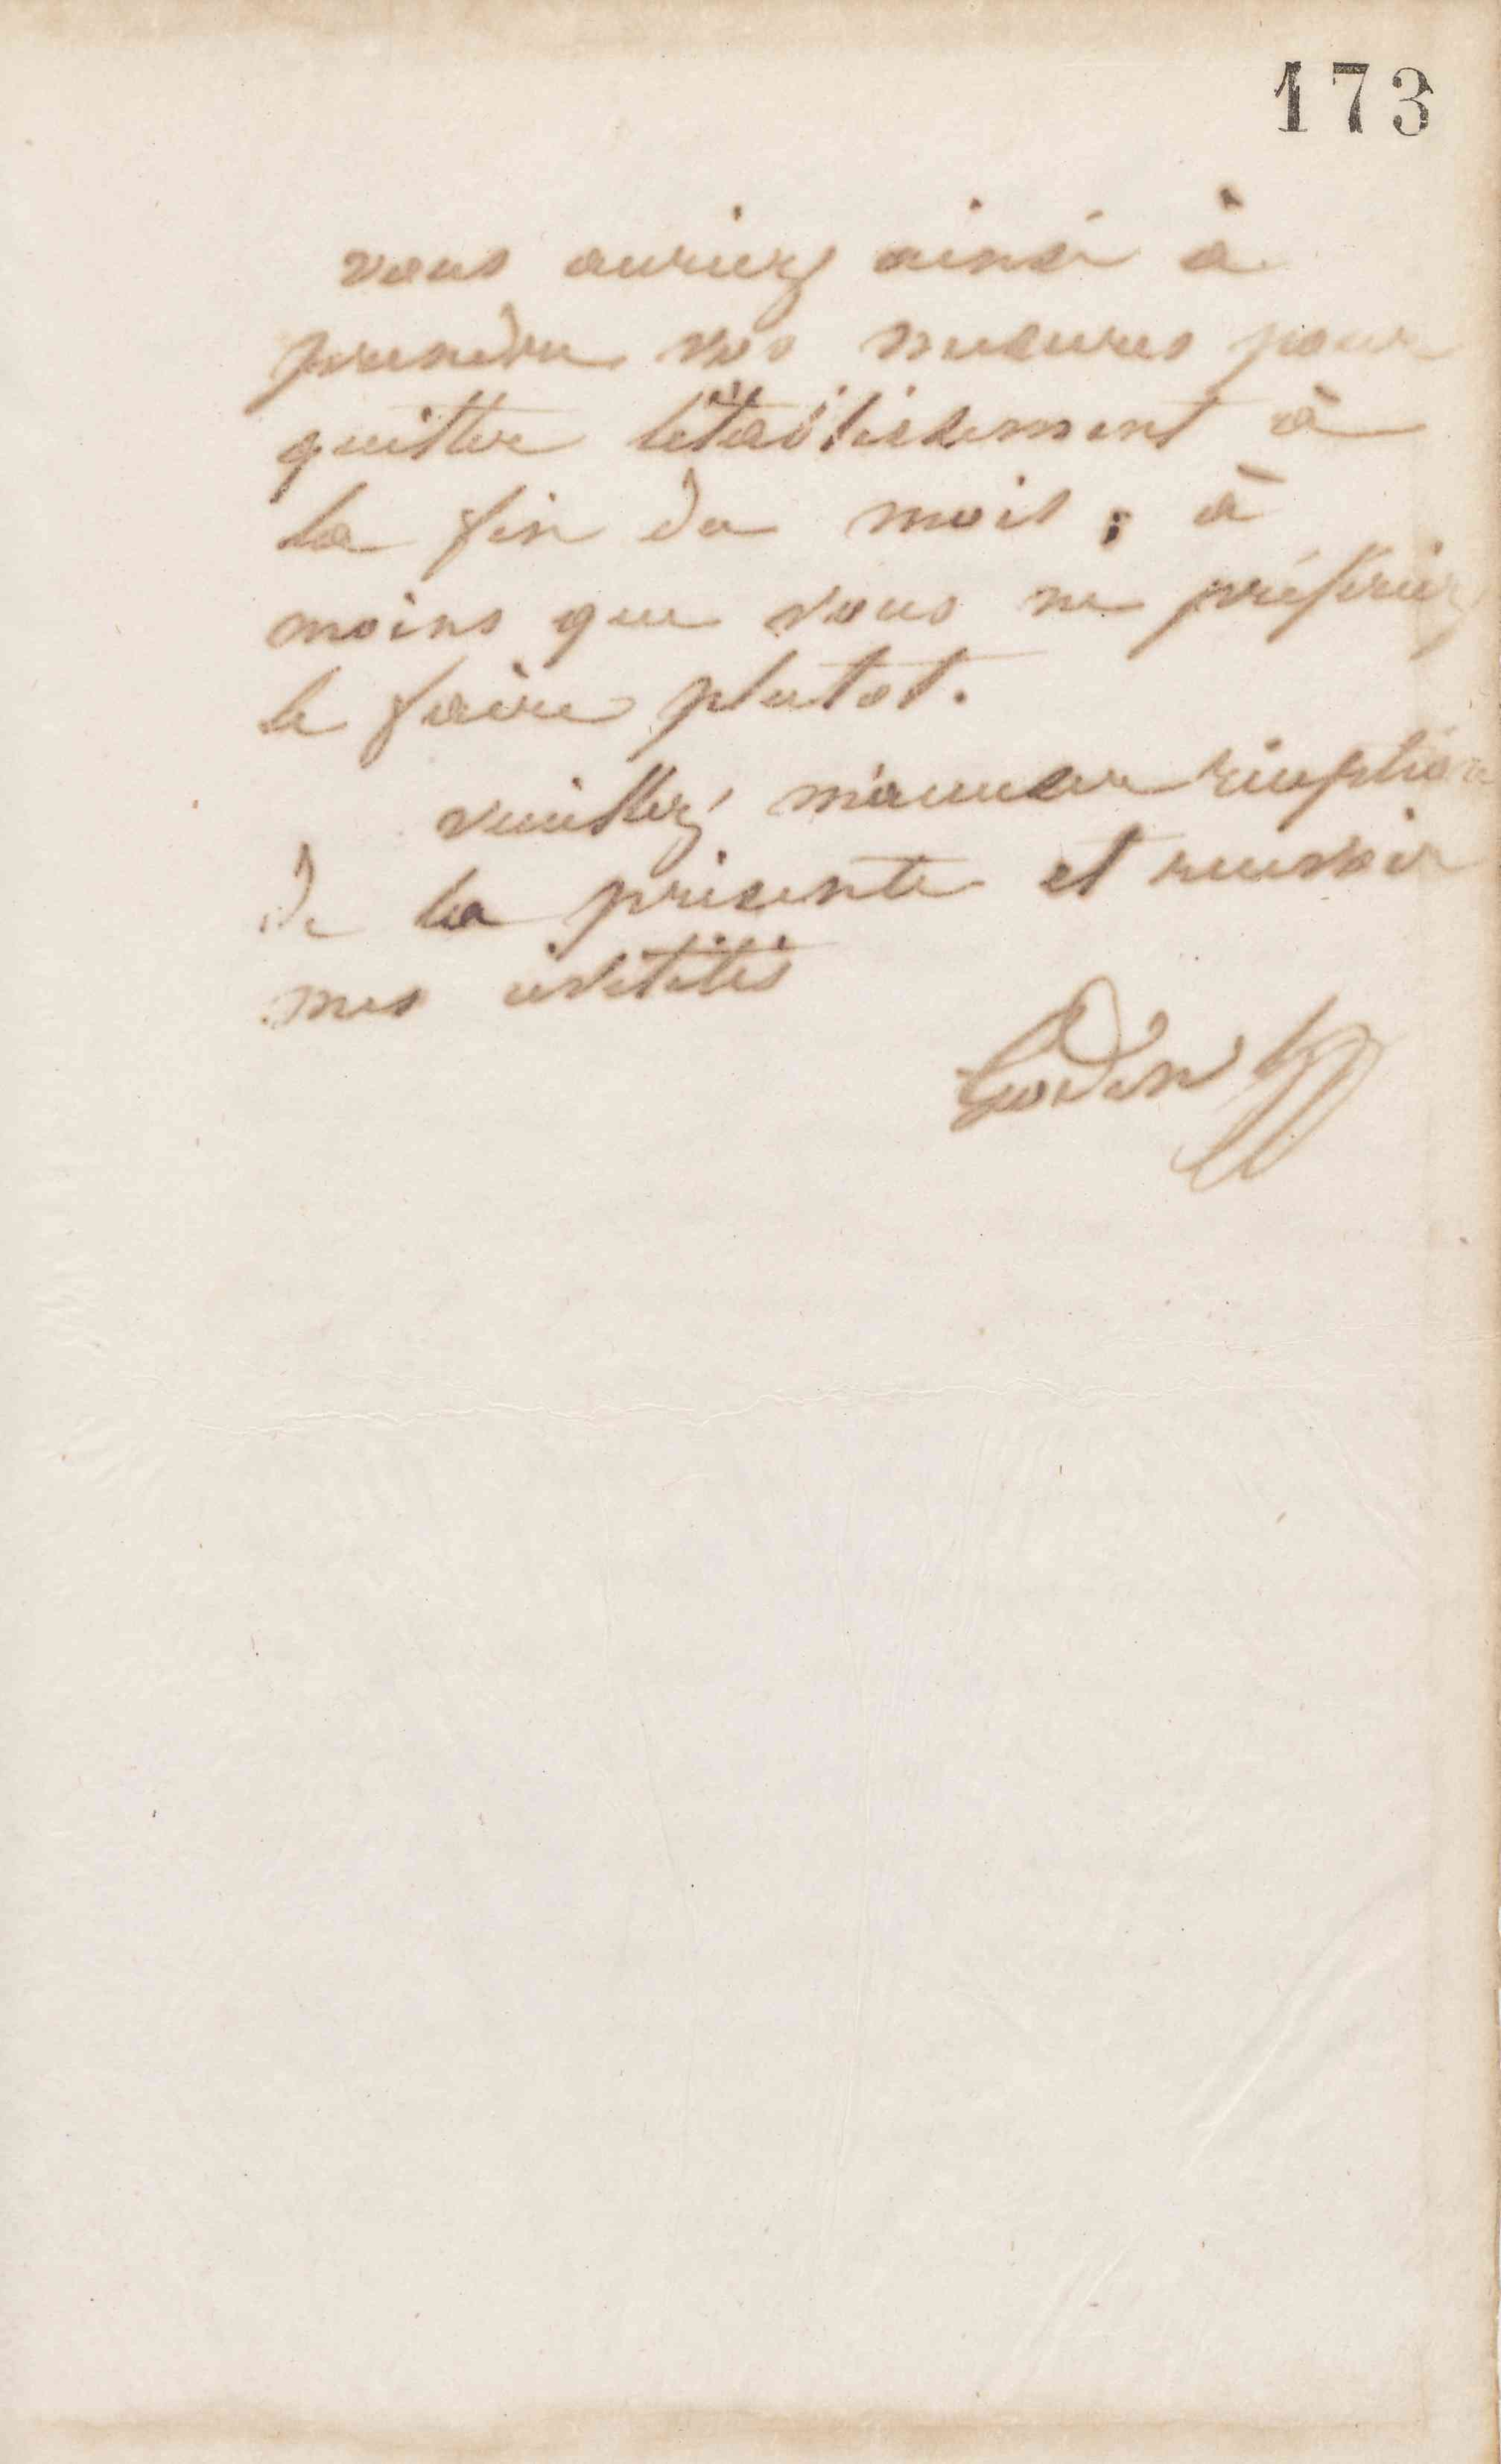 173
vous auriez ainsi à
prendre vos mesures pour
quitter létablissement à
la fin du mois, à
moins que vous ne préfériez
le faire plutot.
veuillez m'accuser réception
de la présente et recevoir
mes civilités
Godin